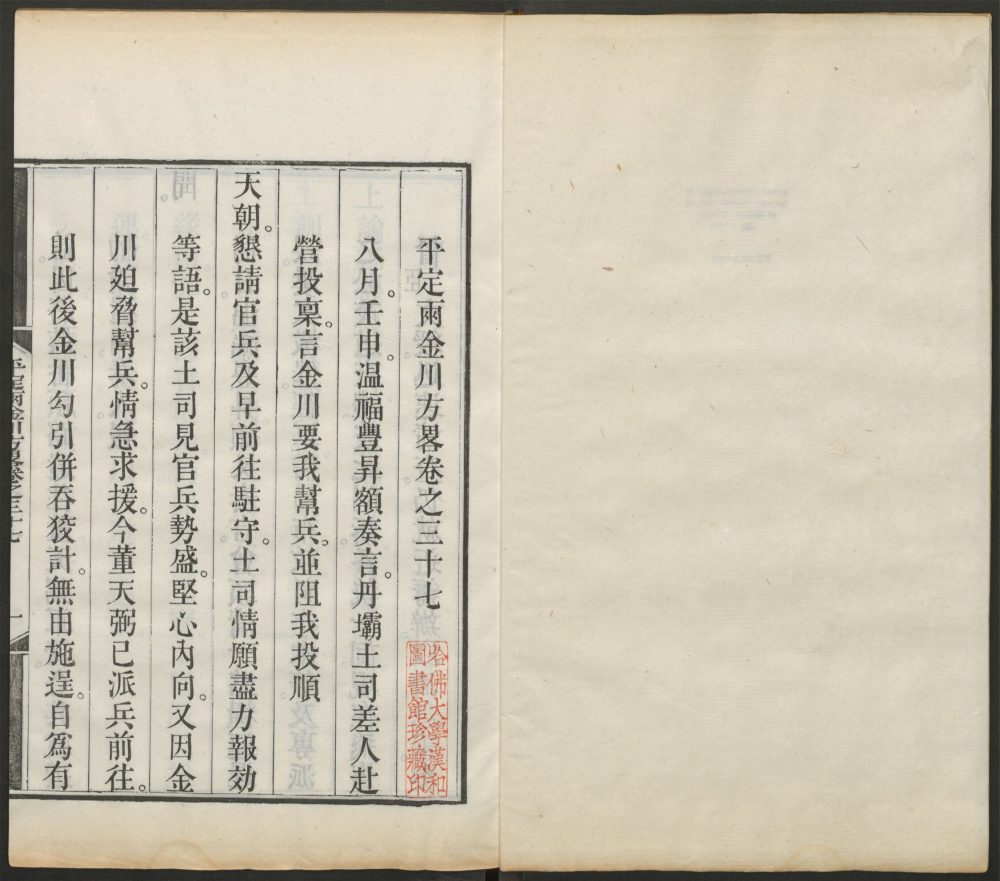 平定兩金川方畧卷之三十七
八月。壬申。温福豐昇額奏言。丹壩土司差人赴
營投稟。言金川要我幫兵。並阻我投順
天朝。懇請官兵及早前往駐守。土司情願盡力報効
等語。是該土司見官兵勢盛。堅心內向。又因金
川廹脅幫兵。情急求援。今董天弼已派兵前往。
則此後金川勾引併吞狡計。無由施逞。自爲有
平定兩金川方畧卷之三十七
一
哈佛大學漢和
圖書館珍藏印